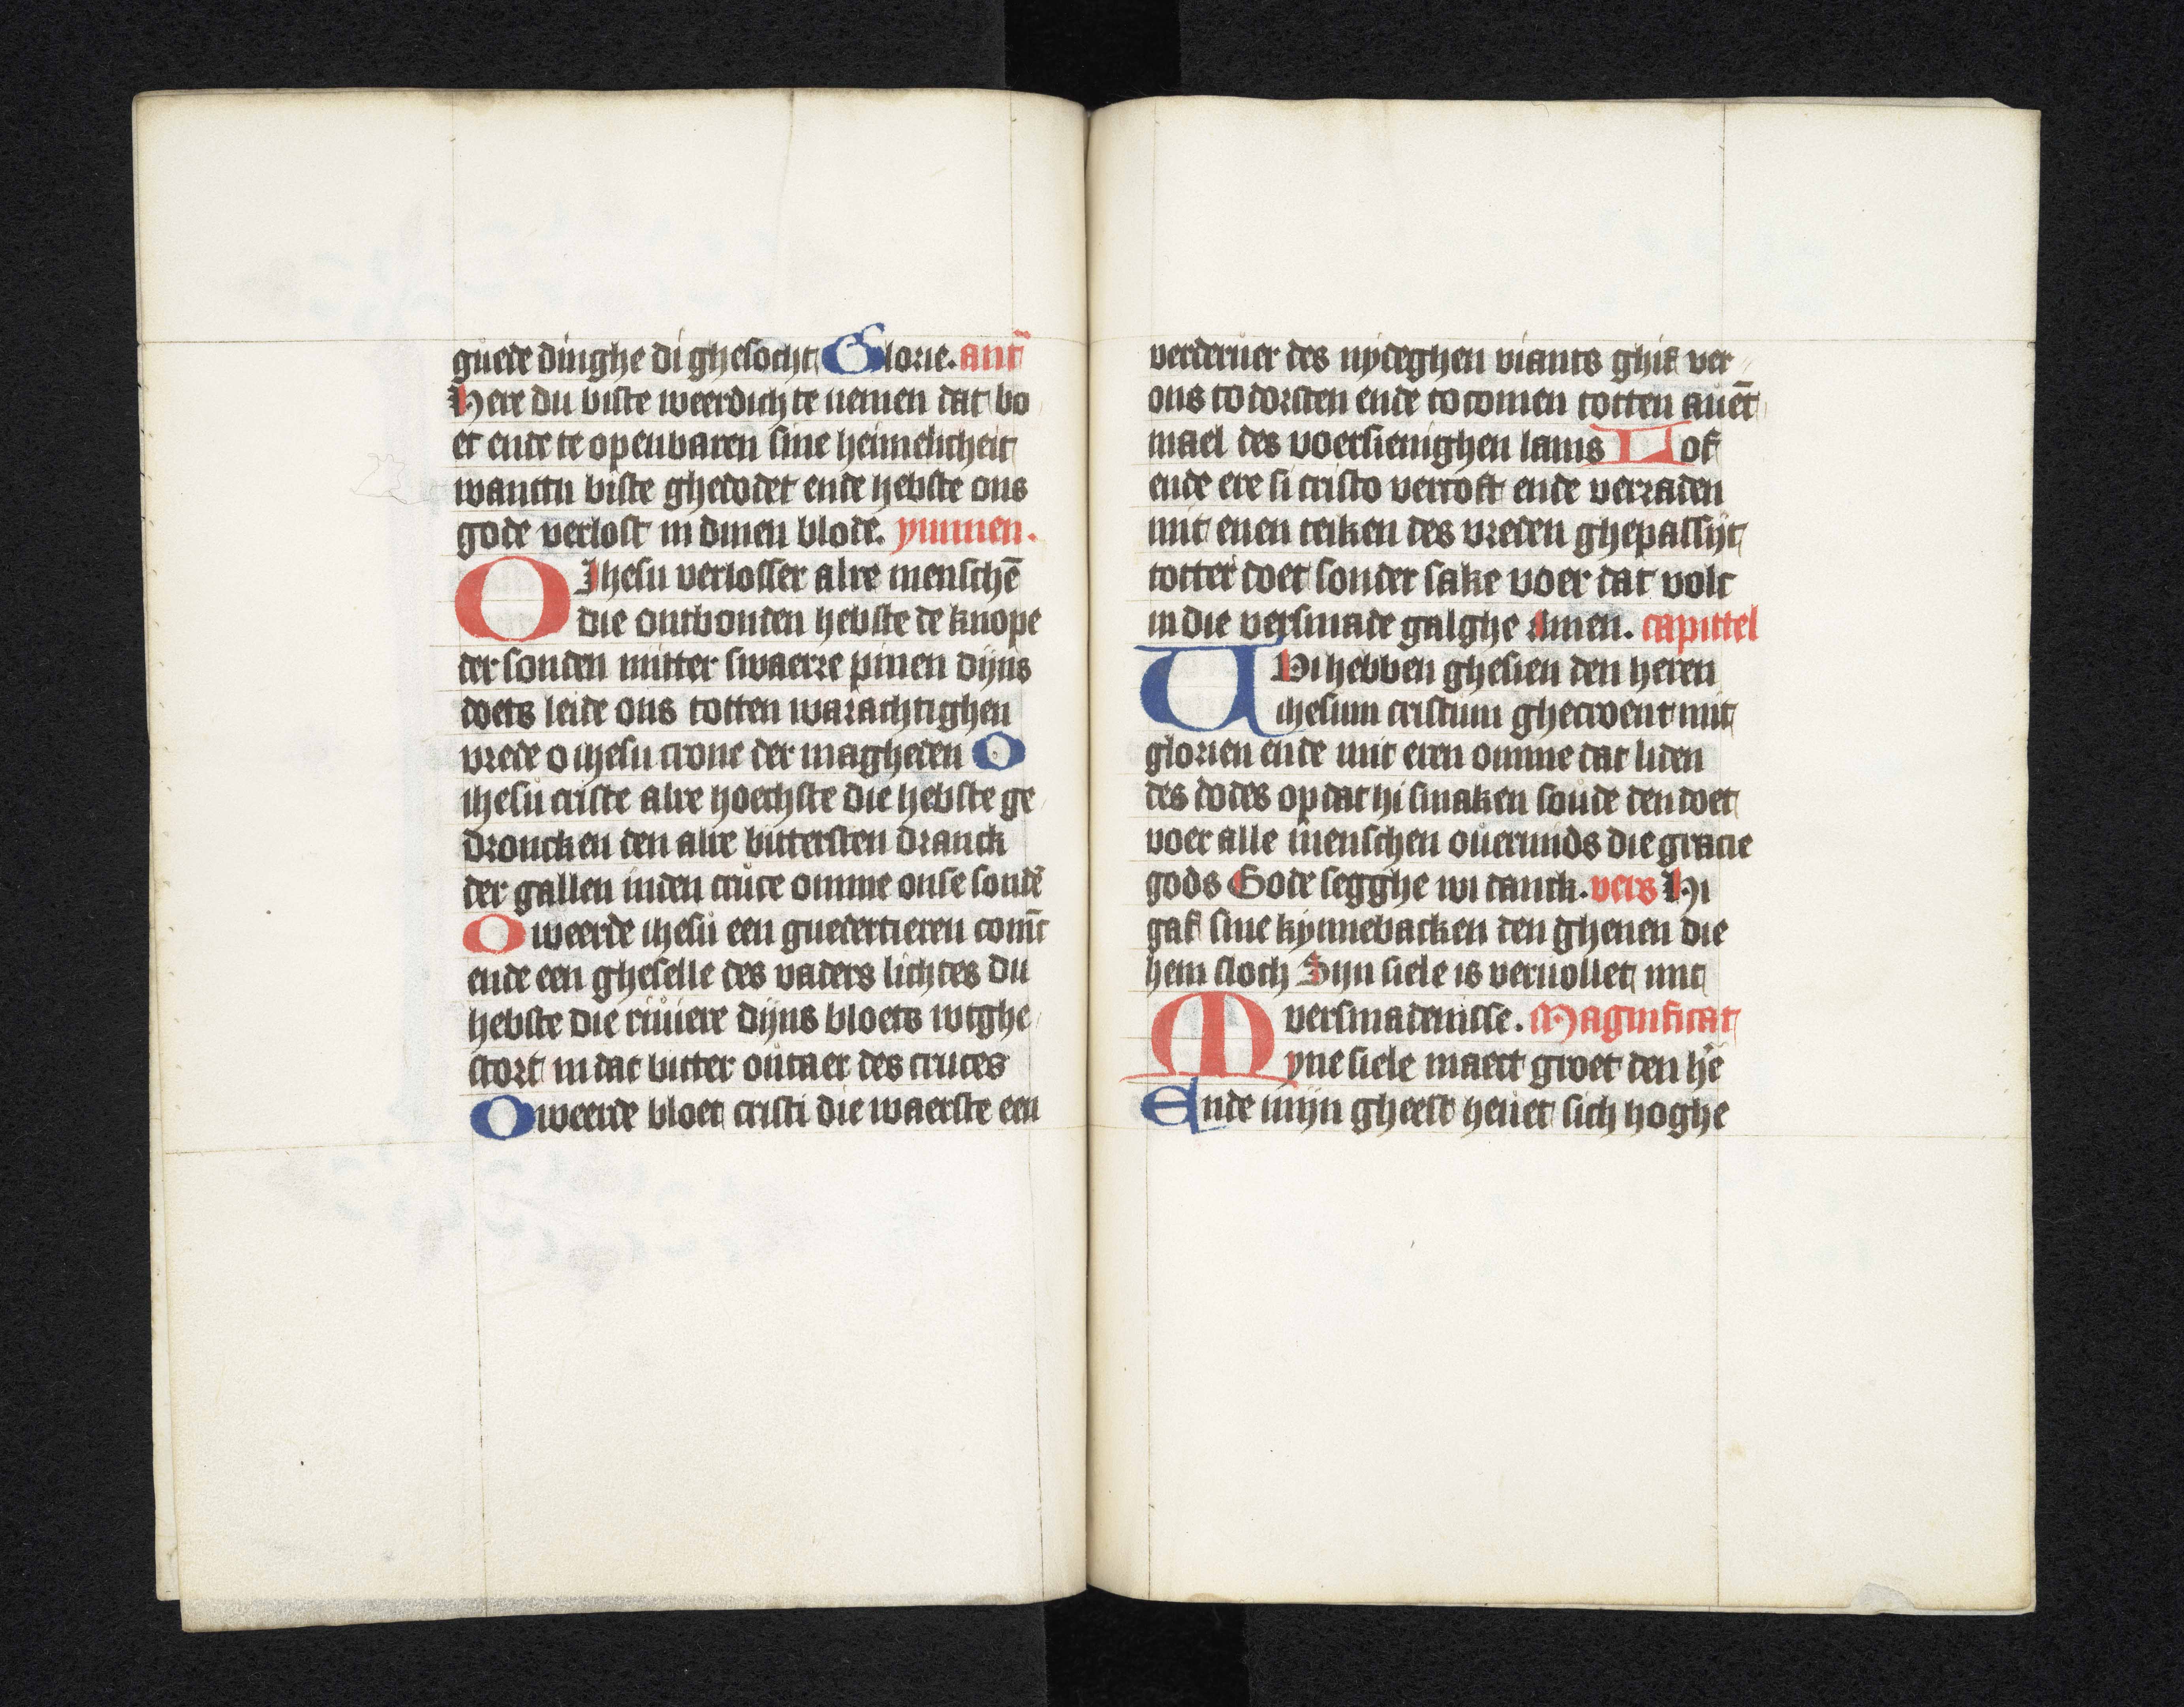 guede dinghe di ghesocht Glorie. ant̄
Here du biste weerdich te nemen dat bo
et ende te openbaren sine heimelicheit
wanttu biste ghedodet ende hebste ons
gode verlost in dinen blode. ymmen.
O Ihesu verlosser alre menschē
die ontbonden hebste de knope
der sonden mitter swaerre pinen dijns
doets leide ons totten warachtighen
vrede o ihesu crone der magheden O
ihesu criste alre hoechste die hebste ge
droncken den alre bittersten dranck
der gallen inden cruce omme onse sondē
O weerde ihesu een guedertieren com̄t
ende een gheselle des vaders lichtes du
hebste die riuiere dijns bloets wtghe
stort in dat bitter outaer des cruces
O weerde bloet cristi die waerste een
verderuer des nydeghen viants ghif ver
ons to dorsten ende to comen totten auēt
mael des voersienighen lams Lof
ende ere si cristo vercoft ende verraden
mit enen teiken des vreden ghepassijt
totter doet sonder sake voer dat volc
in die versmade galghe Amen. capittel
Wi hebben ghesien den heren
ihesum cristum ghecroent mit
glorien ende mit eren omme dat liden
des dodes op dat hi smaken soude den doet
voer alle menschen ouermids die gracie
gods Gode segghe wi danck. vers Hi
gaf sine kynnebacken den ghenen die
hem sloch Sijn siele is veruollet mit
versmadenisse. Magnificat
Myne siele maect groet den hē
Ende mijn gheest heuet sich hoghe